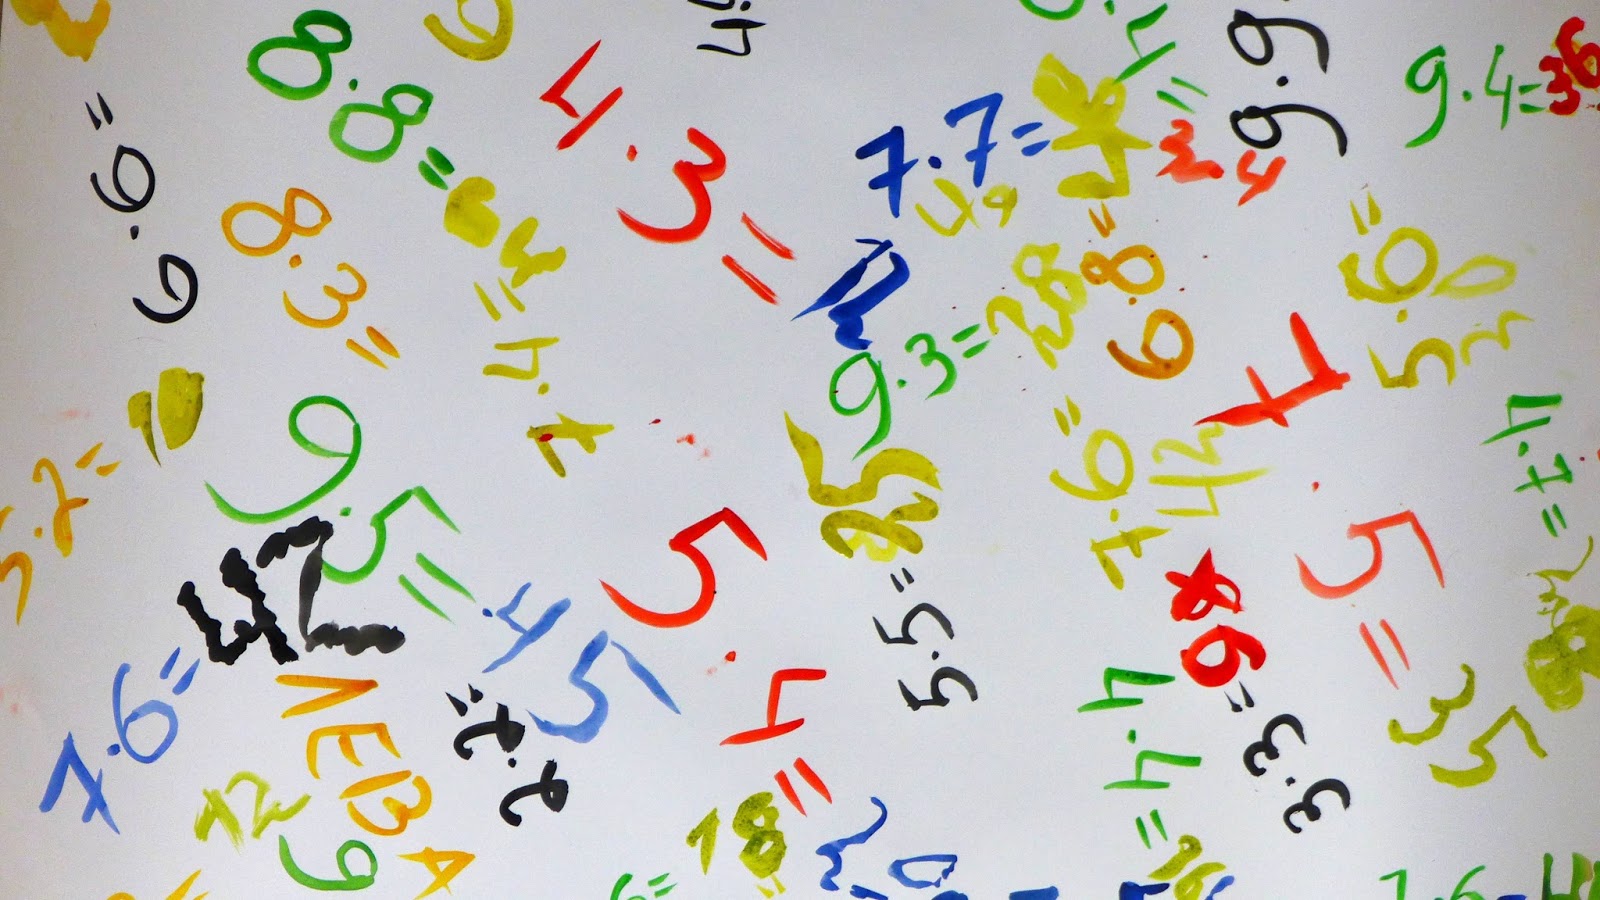 9.9
9.4=36
8.8=
4.3=
7.7=
49
6.6=
8.3=
6.8=
9.3=28
5.6=
30
7.4=
9.5=45
25
5.5=
7.6=
42
7.5=35
4.7=
5.4=
7.6=42
ЛЕВА
2.2=
3.3=
4.4=16
72
9
18
20